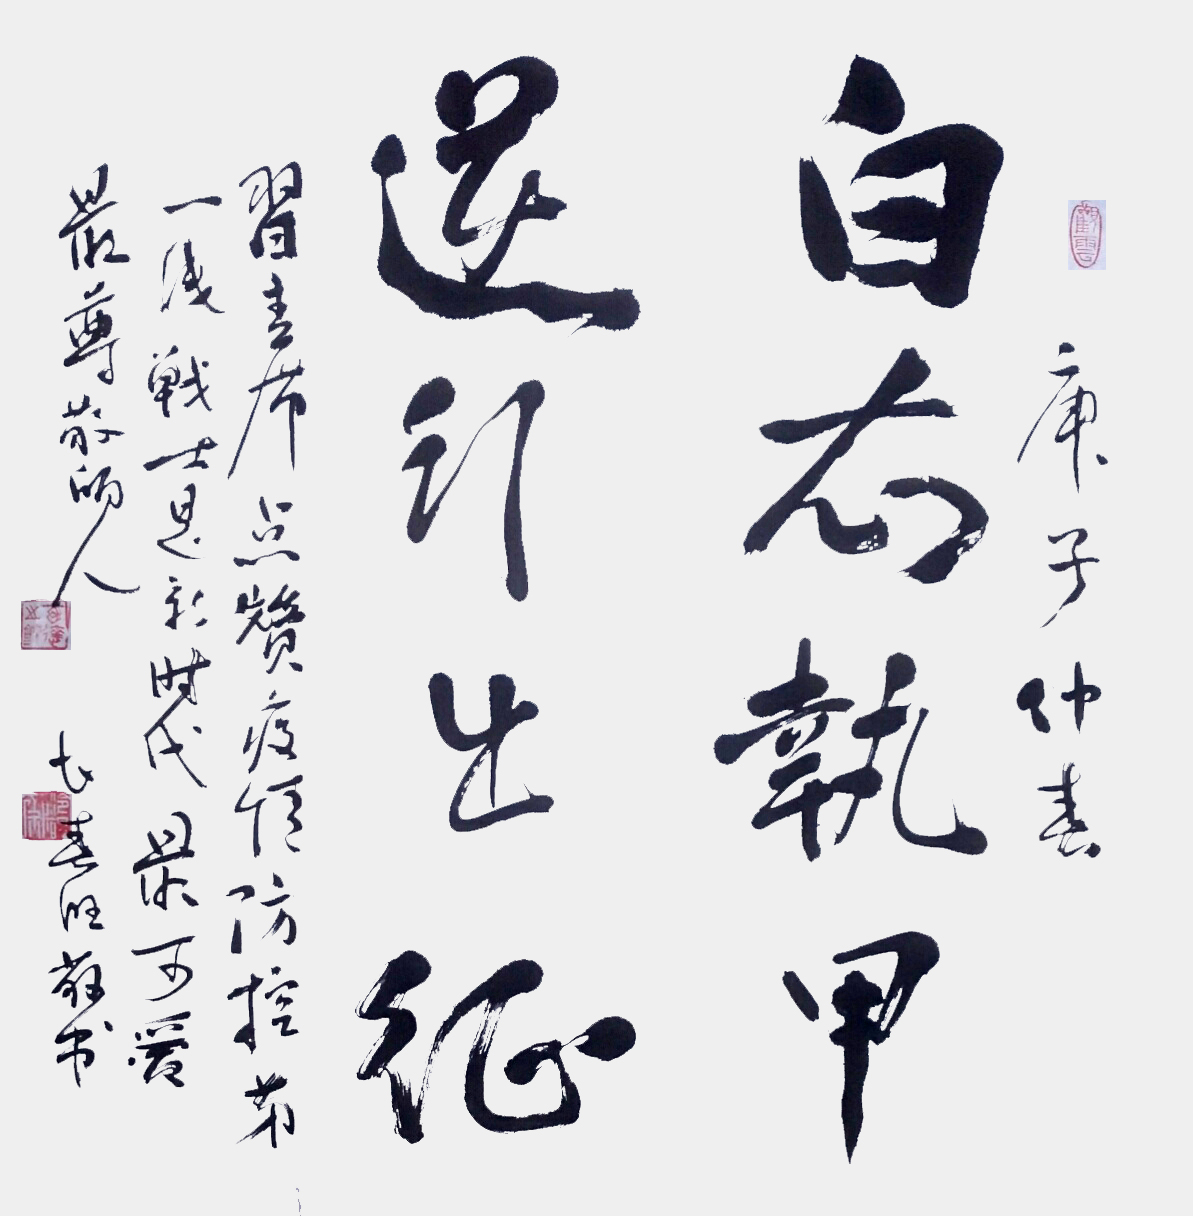 觀雲
庚子仲春
白衣執甲
逆行出征
習主席点贊疫情防控第
一线戰士是新时代最可爱
最尊敬的人
长春旺敬书